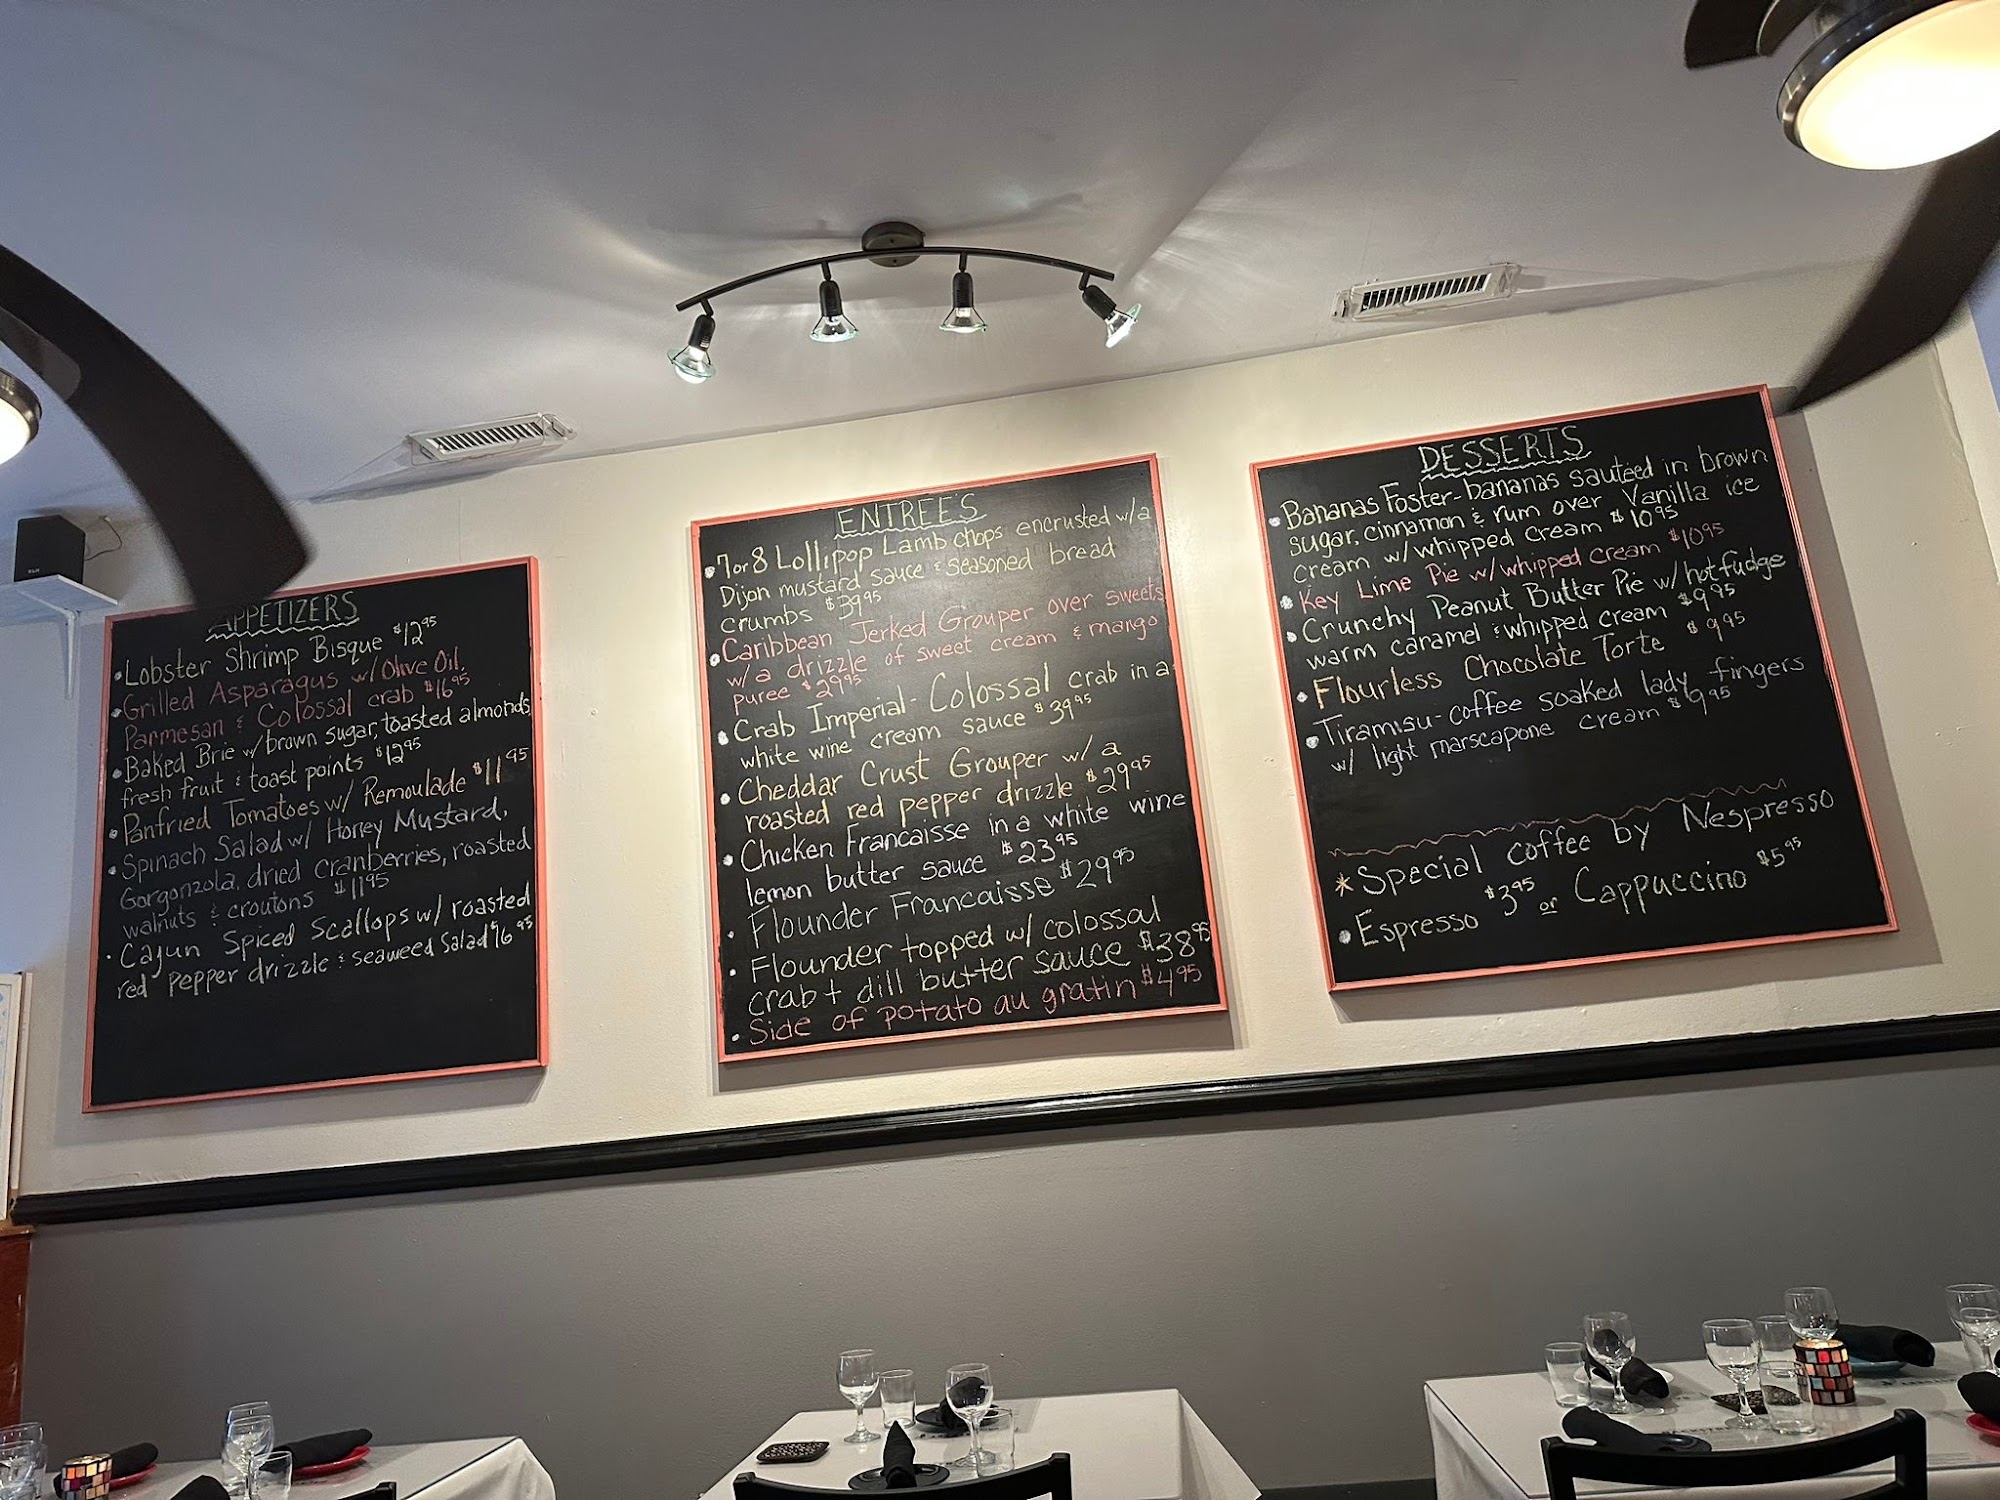 APPETIZERS
• Lobster Shrimp Bisque $12.95
• Grilled Asparagus w/ Olive Oil,
Parmesan & Colossal crab $16.95
• Baked Brie w/ brown sugar, toasted almonds,
fresh fruit & toast points $12.95
• Panfried Tomatoes w/ Remoulade $11.95
• Spinach Salad w/ Honey Mustard,
Gorgonzola, dried cranberries, roasted
walnuts & croutons $11.95
• Cajun Spiced Scallops w/ roasted
red pepper drizzle & seaweed salad $16.95
ENTREE'S
• 7 or 8 Lollipop Lamb chops encrusted w/ a
Dijon mustard sauce & seasoned bread
crumbs $39.95
• Caribbean Jerked Grouper over sweets
w/ a drizzle of sweet cream & mango
puree $29.95
• Crab Imperial - Colossal crab in a
white wine cream sauce $39.95
• Cheddar Crust Grouper w/ a
roasted red pepper drizzle $29.95
• Chicken Francaisse in a white wine
lemon butter sauce $23.95
• Flounder Francaisse $29.95
• Flounder topped w/ colossal
crab + dill butter sauce $38.95
• Side of potato au gratin $4.95
DESSERTS
• Bananas Foster - bananas sautéed in brown
sugar, cinnamon & rum over Vanilla ice
cream w/ whipped cream $10.95
• Key Lime Pie w/ whipped cream $10.95
• Crunchy Peanut Butter Pie w/ hot fudge
warm caramel & whipped cream $9.95
• Flourless Chocolate Torte $9.95
• Tiramisu - coffee soaked lady fingers
w/ light marscapone cream $9.95
* Special coffee by Nespresso
• Espresso $3.95 or Cappuccino $5.95